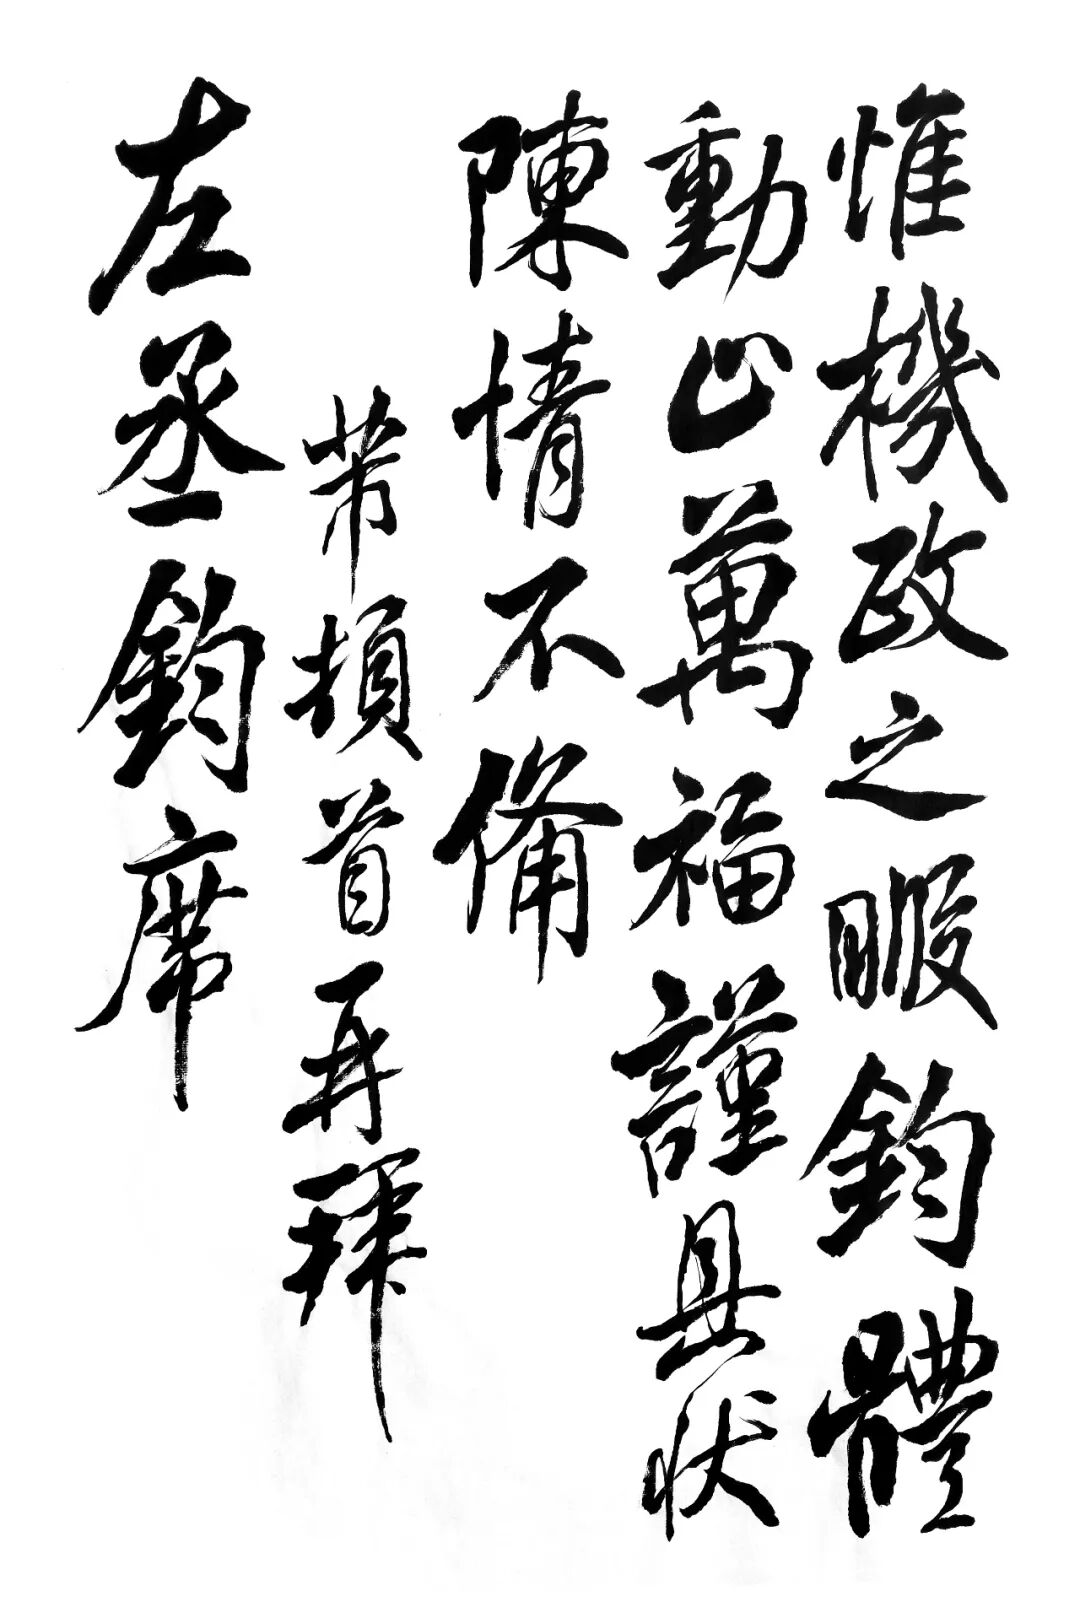 惟機政之暇鈞體
動止萬福謹具狀
陳情不備
芾頓首再拜
左丞鈞席